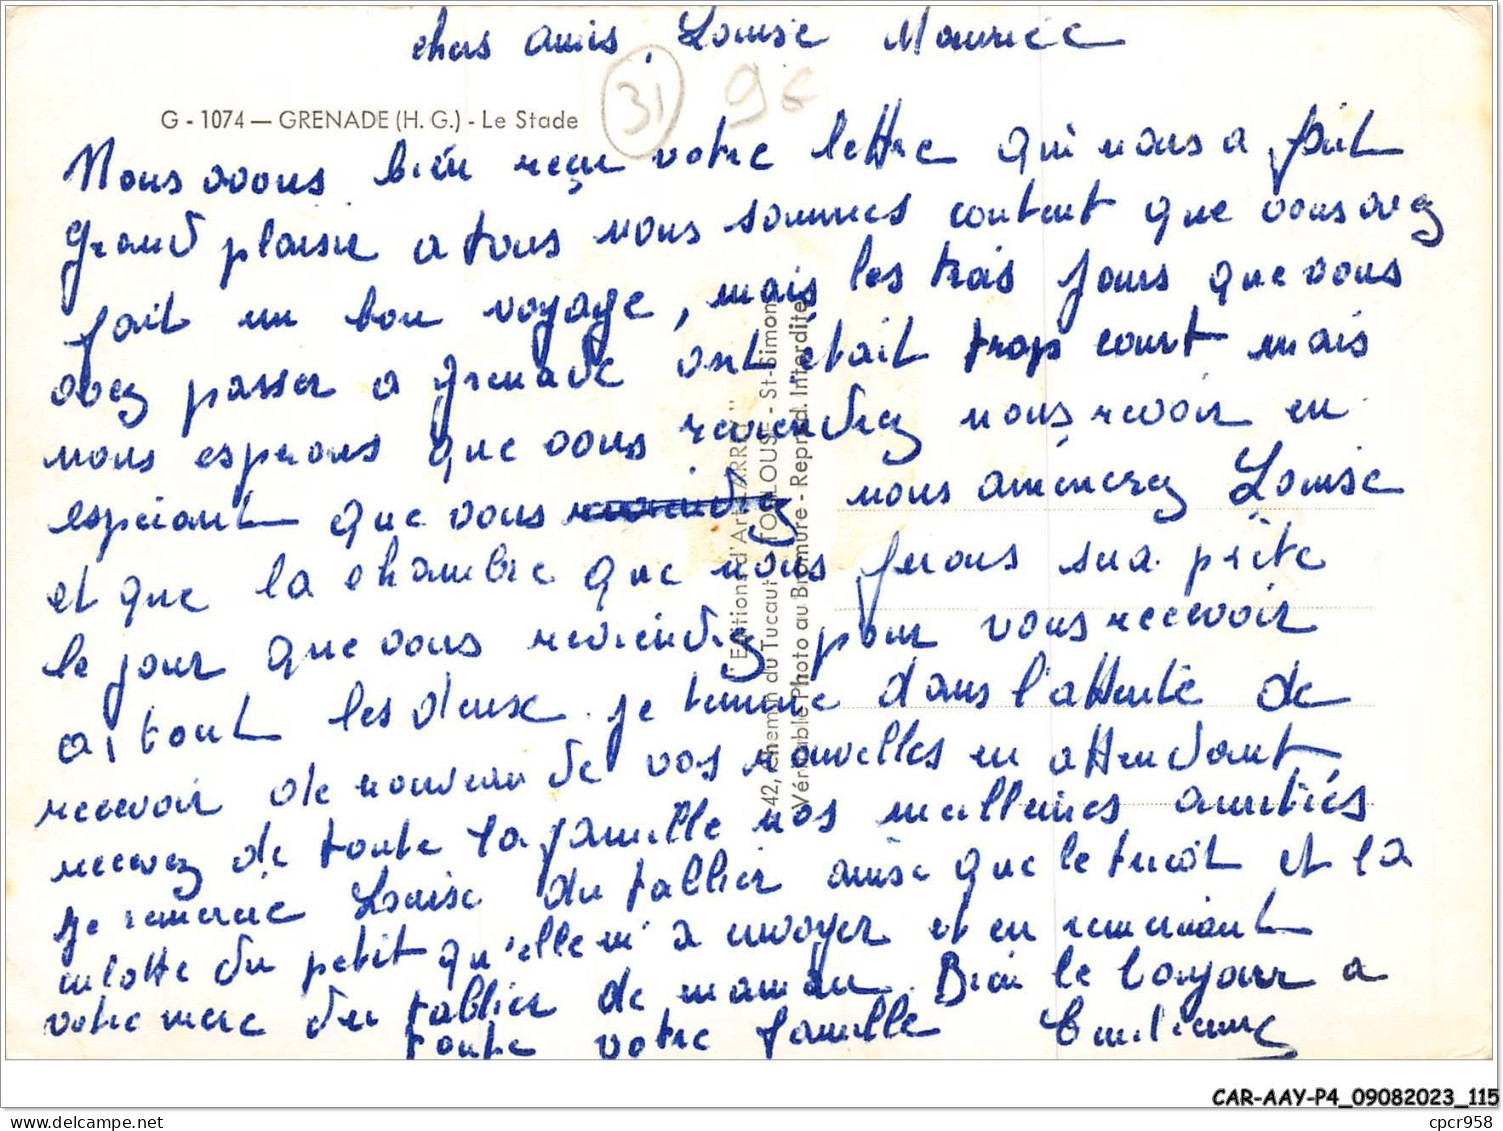 chers amis, Louise Maurice
31 96
G - 1074 — GRENADE (H. G.) - Le Stade
Nous avons bien reçu votre lettre qui nous a fait
grand plaisir a tous nous sommes content que vous avez
fait un bon voyage, mais les trois jours que vous
avez passer a Grenade ont était trop court mais
nous esperons que vous reviendrez nous revoir en
espérant que vous nous amènerez Louise
et que la chambre que nous ferons sera prête
le jour que vous reviendrez pour vous recevoir
tout les deux. je termine dans l'attente de
recevoir de nouveau de vos nouvelles en attendant
recevez de toute la famille nos meilleures amitiés
je remercie Louise du tablier ainsi que le tricot et la
culotte du petit qu'elle m'a envoyer et en remerciant
votre mere du tablier de maman. Bien le bonjour a
toute votre famille Emilienne
"Editions d'Art LARREY"
42, Chemin du Tucaut - TOULOUSE - St-Simon
Véritable Photo au Bromure - Reprod. Interdite
CAR-AAY-P4_09082023_115
delcampe.net
cpcr958